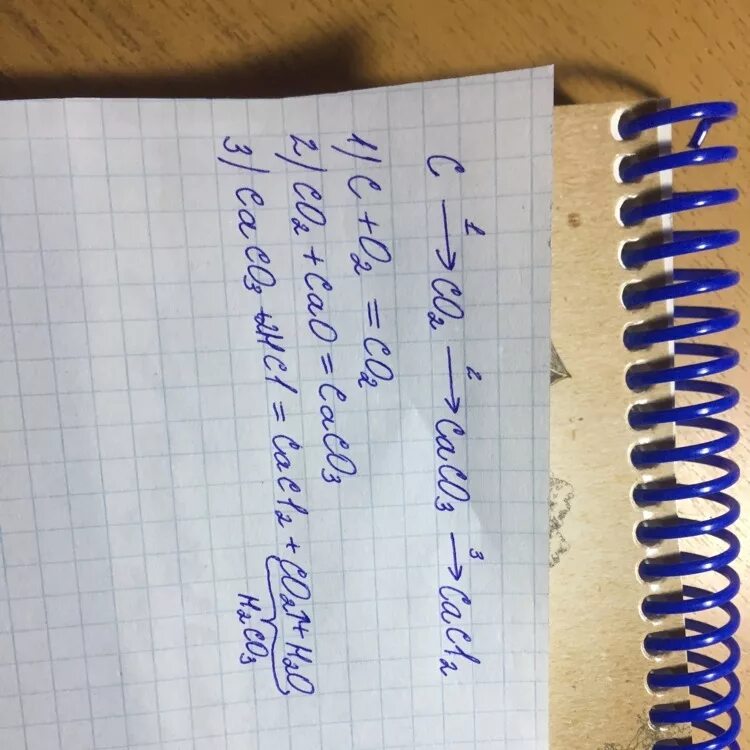 C →1 CO₂ →2 CaCO₃ →3 CaCl₂
1) C + O₂ = CO₂
2) CO₂ + CaO = CaCO₃
3) CaCO₃ + 2HCl = CaCl₂ + CO₂↑ + H₂O
H₂CO₃